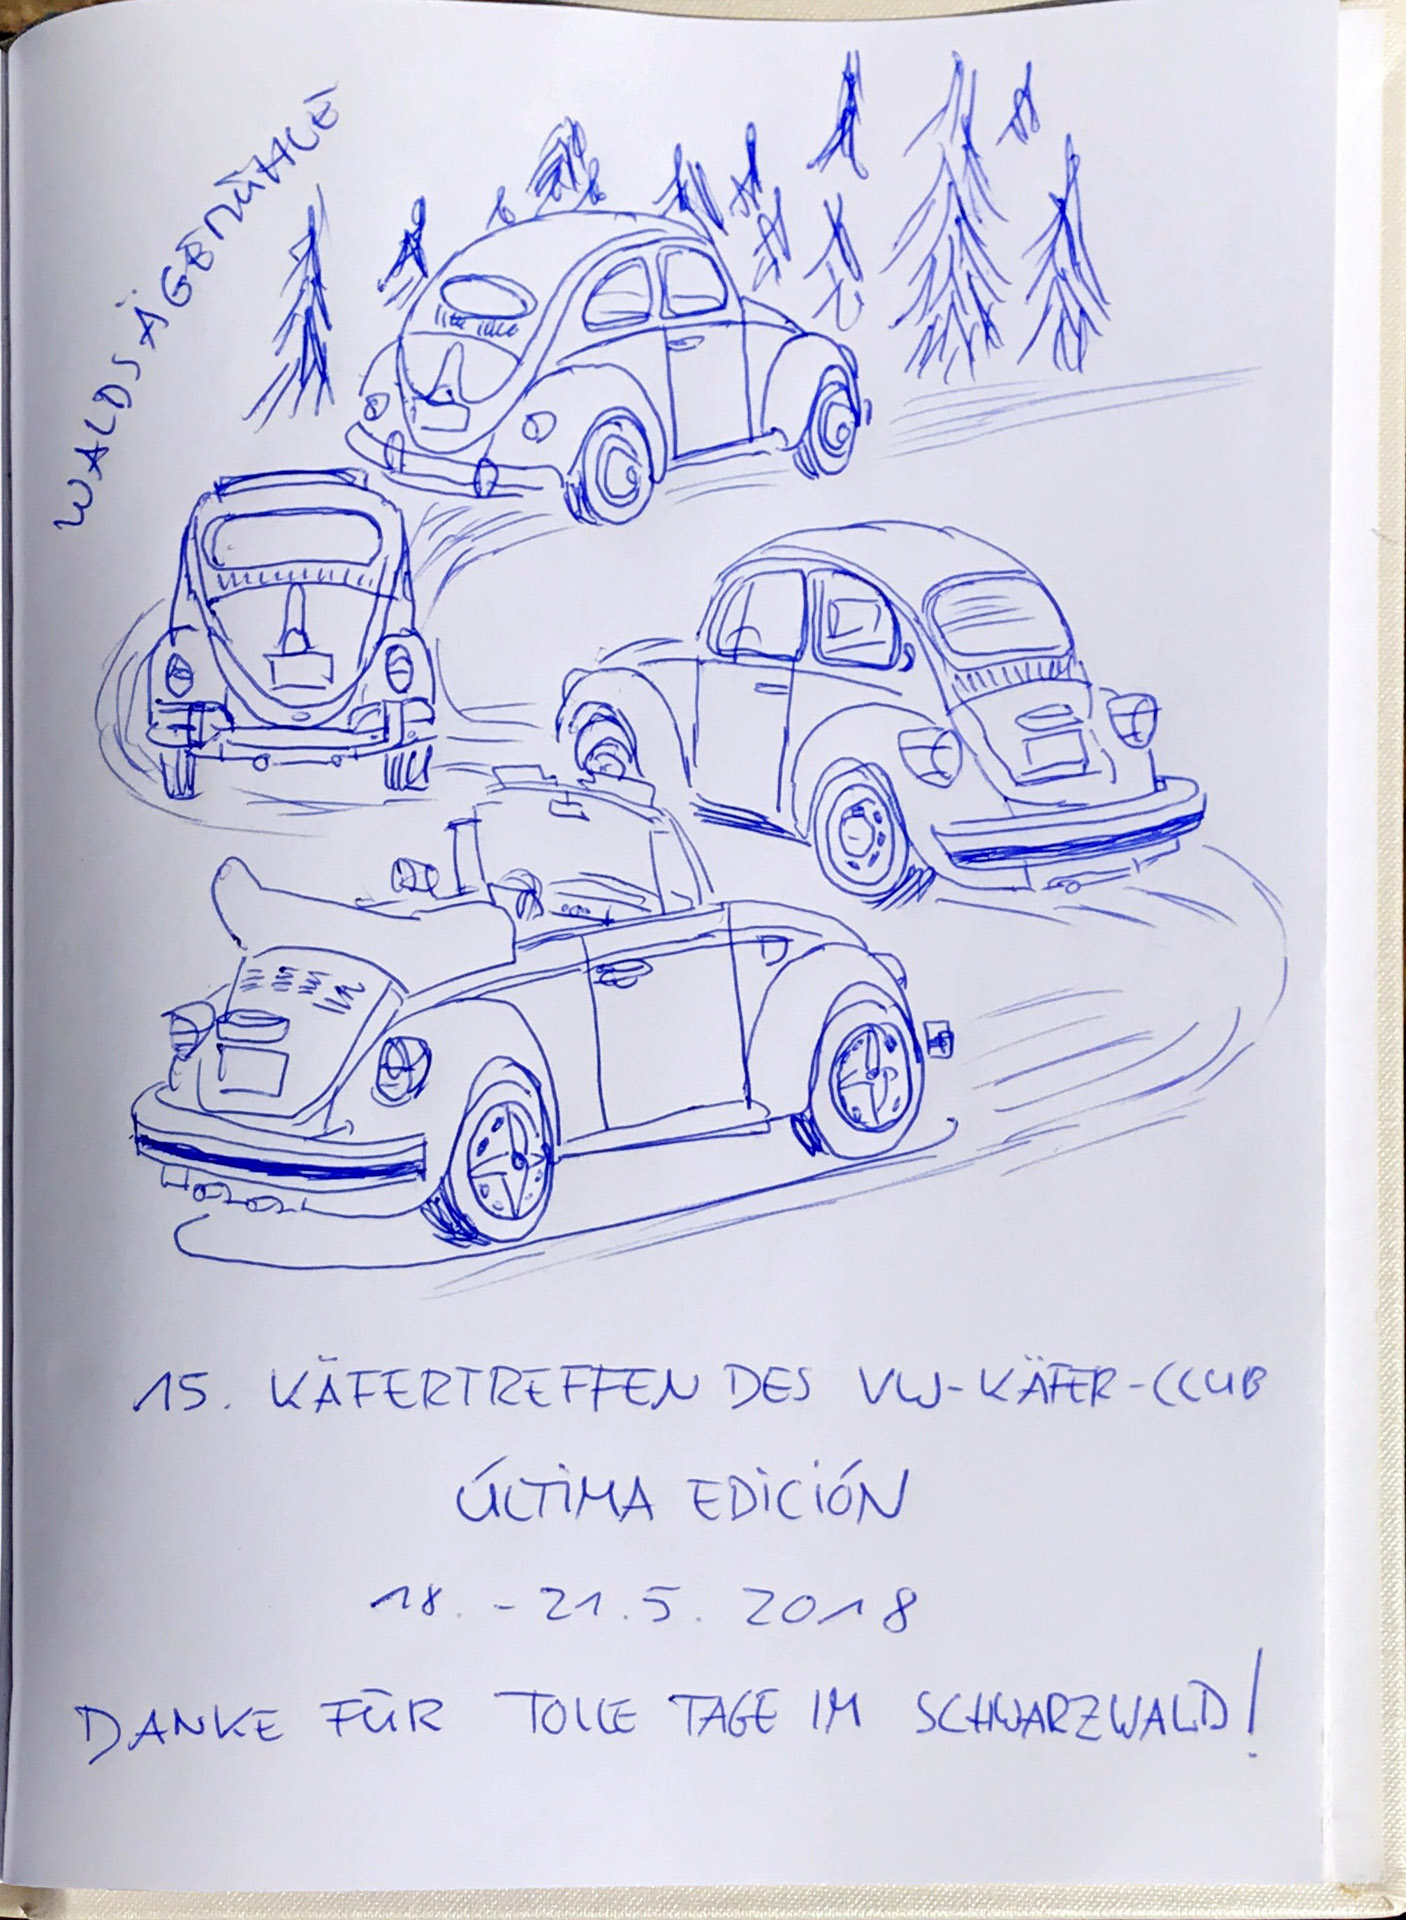 WALDSÄGEMÜHLE
15. KÄFERTREFFEN DES VW-KÄFER-CLUB
ÚLTIMA EDICIÓN
18. - 21.5. 2018
DANKE FÜR TOLLE TAGE IM SCHWARZWALD!